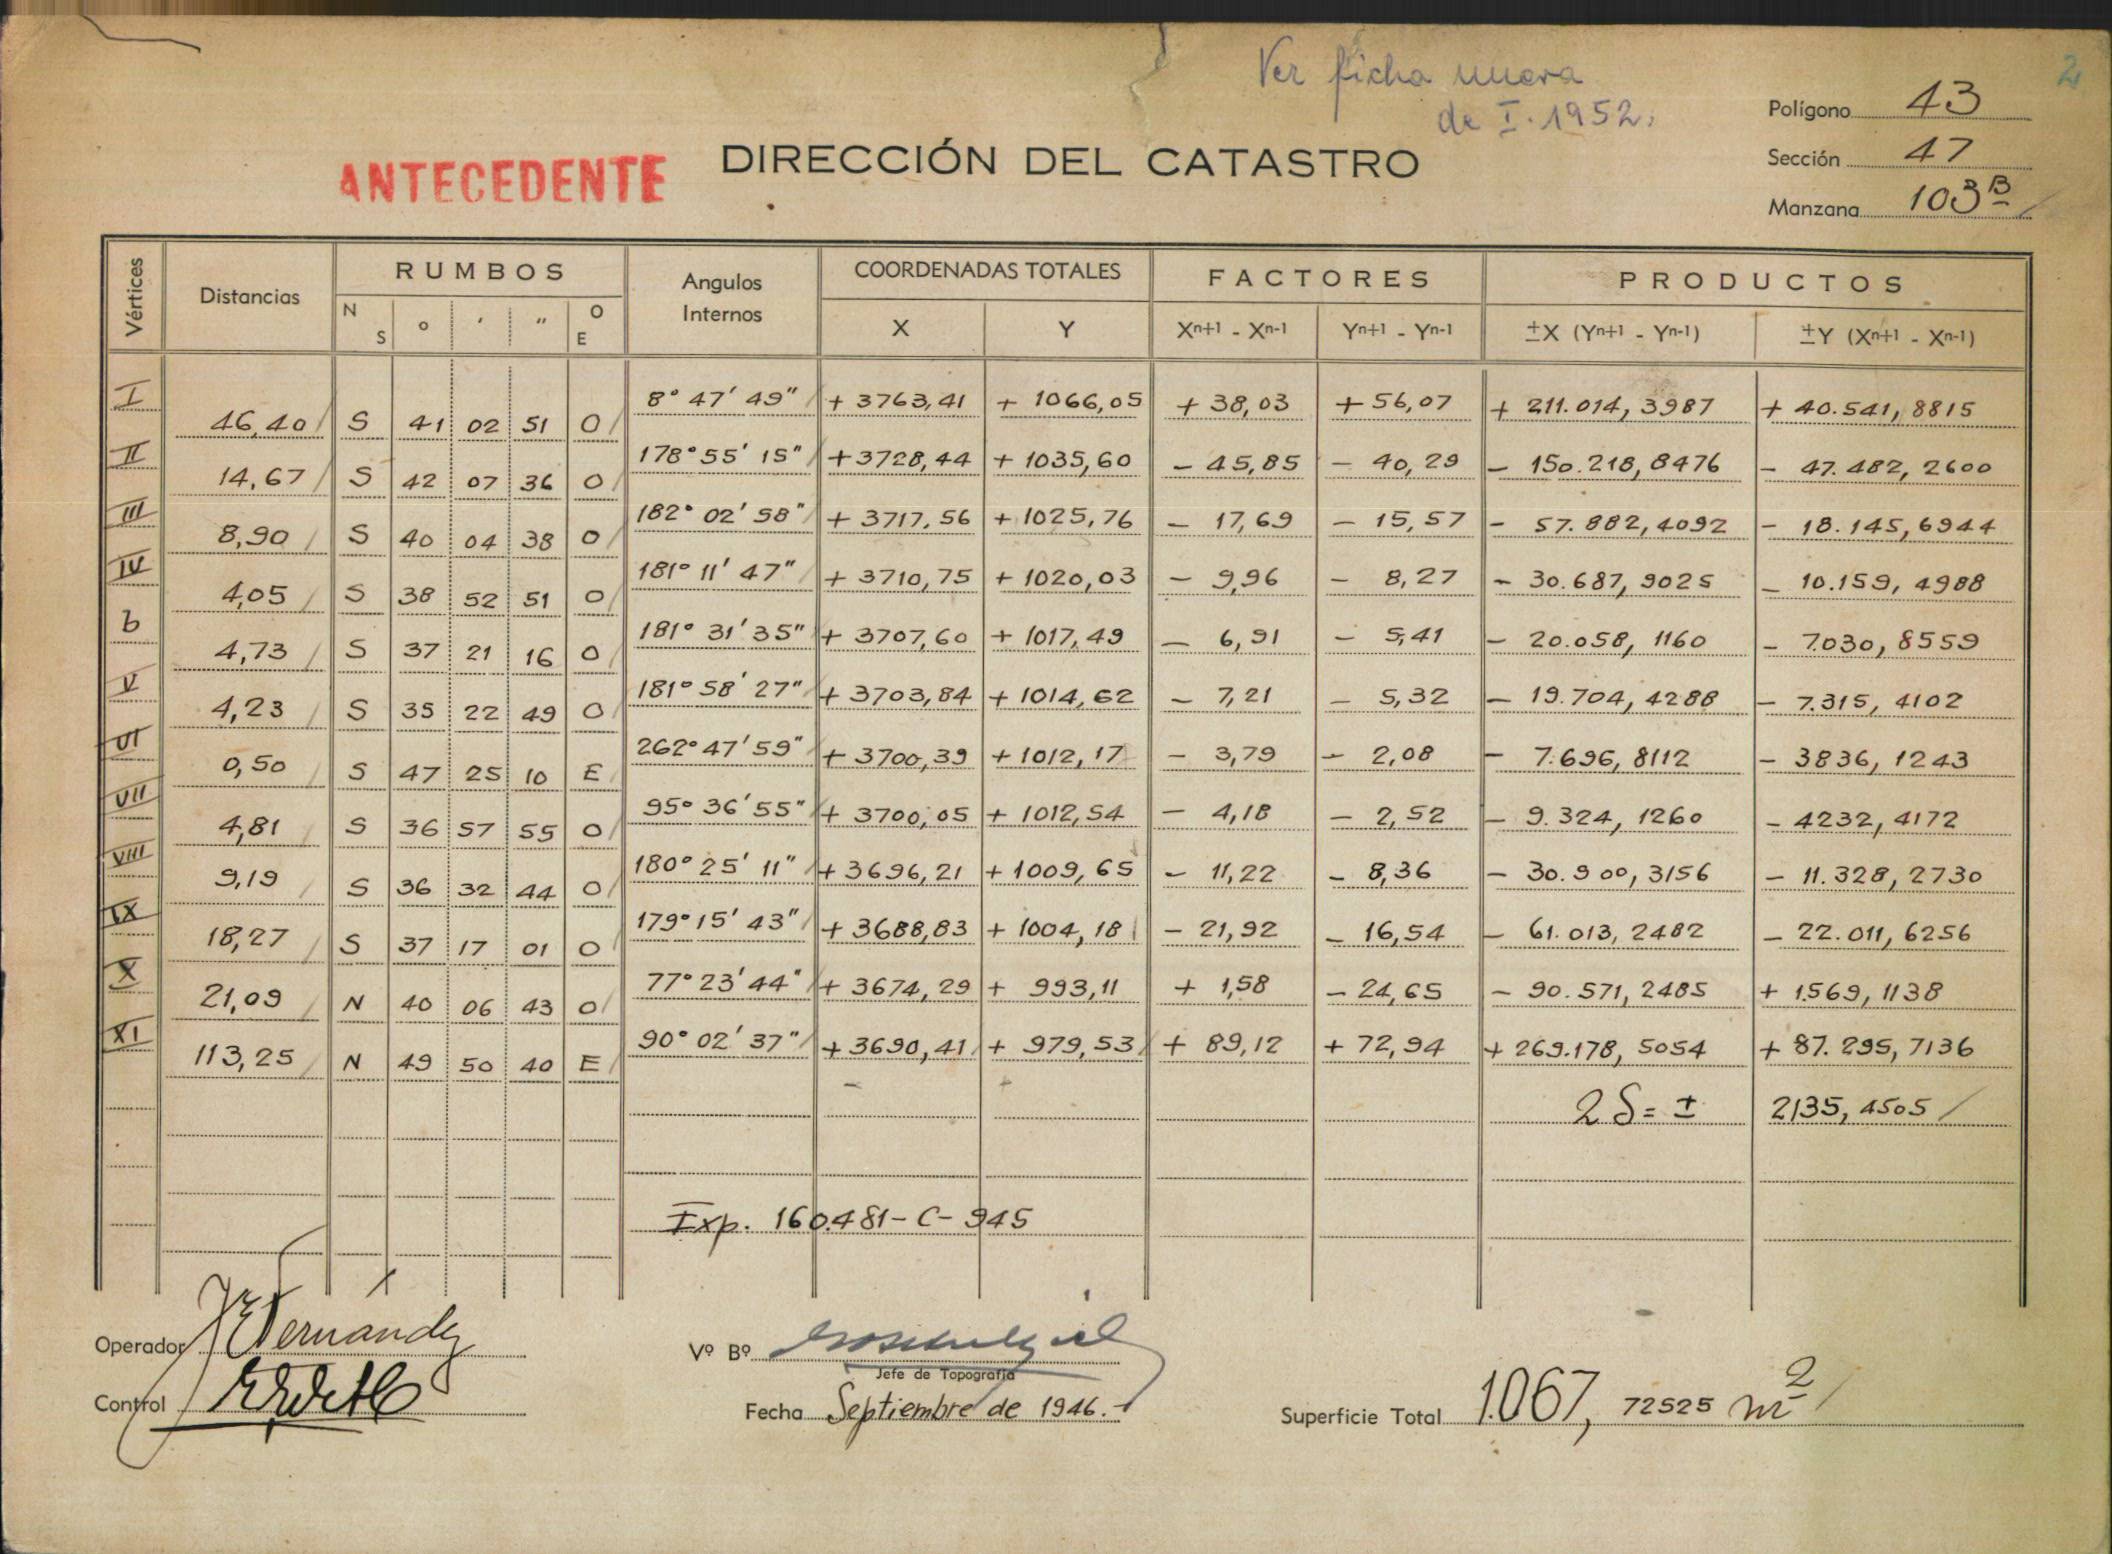 Ver ficha nueva
de I. 1952.
2
Polígono 43
Sección 47
Manzana 103 B
ANTECEDENTE
DIRECCIÓN DEL CATASTRO
Vértices Distancias RUMBOS Angulos Internos COORDENADAS TOTALES FACTORES PRODUCTOS
N S ° ′ ″ O E X Y Xn+1 - Xn-1 Yn+1 - Yn-1 ±X (Yn+1 - Yn-1) ±Y (Xn+1 - Xn-1)
I 8° 47′ 49″ + 3763,41 + 1066,05 + 38,03 + 56,07 + 211.014,3987 + 40.541,8815
46,40 S 41 02 51 O
II 178° 55′ 15″ + 3728,44 + 1035,60 - 45,85 - 40,29 - 150.218,8476 - 47.482,2600
14,67 S 42 07 36 O
III 182° 02′ 58″ + 3717,56 + 1025,76 - 17,69 - 15,57 - 57.882,4092 - 18.145,6944
8,90 S 40 04 38 O
IV 181° 11′ 47″ + 3710,75 + 1020,03 - 9,96 - 8,27 - 30.687,9025 - 10.159,4988
4,05 S 38 52 51 O
b 181° 31′ 35″ + 3707,60 + 1017,49 - 6,91 - 5,41 - 20.058,1160 - 7.030,8559
4,73 S 37 21 16 O
V 181° 58′ 27″ + 3703,84 + 1014,62 - 7,21 - 5,32 - 19.704,4288 - 7.315,4102
4,23 S 35 22 49 O
VI 262° 47′ 59″ + 3700,39 + 1012,17 - 3,79 - 2,08 - 7.696,8112 - 3836,1243
0,50 S 47 25 10 E
VII 95° 36′ 55″ + 3700,05 + 1012,54 - 4,18 - 2,52 - 9.324,1260 - 4232,4172
4,81 S 36 57 55 O
VIII 180° 25′ 11″ + 3696,21 + 1009,65 - 11,22 - 8,36 - 30.900,3156 - 11.328,2730
9,19 S 36 32 44 O
IX 179° 15′ 43″ + 3688,83 + 1004,18 - 21,92 - 16,54 - 61.013,2482 - 22.011,6256
18,27 S 37 17 01 O
X 77° 23′ 44″ + 3674,29 + 993,11 + 1,58 - 24,65 - 90.571,2485 + 1.569,1138
21,09 N 40 06 43 O
XI 90° 02′ 37″ + 3690,41 + 979,53 + 89,12 + 72,94 + 269.178,5054 + 87.295,7136
113,25 N 49 50 40 E
2 S = ± 2135,4505
Exp. 160.481-C-945
Operador Fernández
Vº Bº
Jefe de Topografía
Control
Fecha Septiembre de 1946.-
Superficie Total 1.067,72525 m2